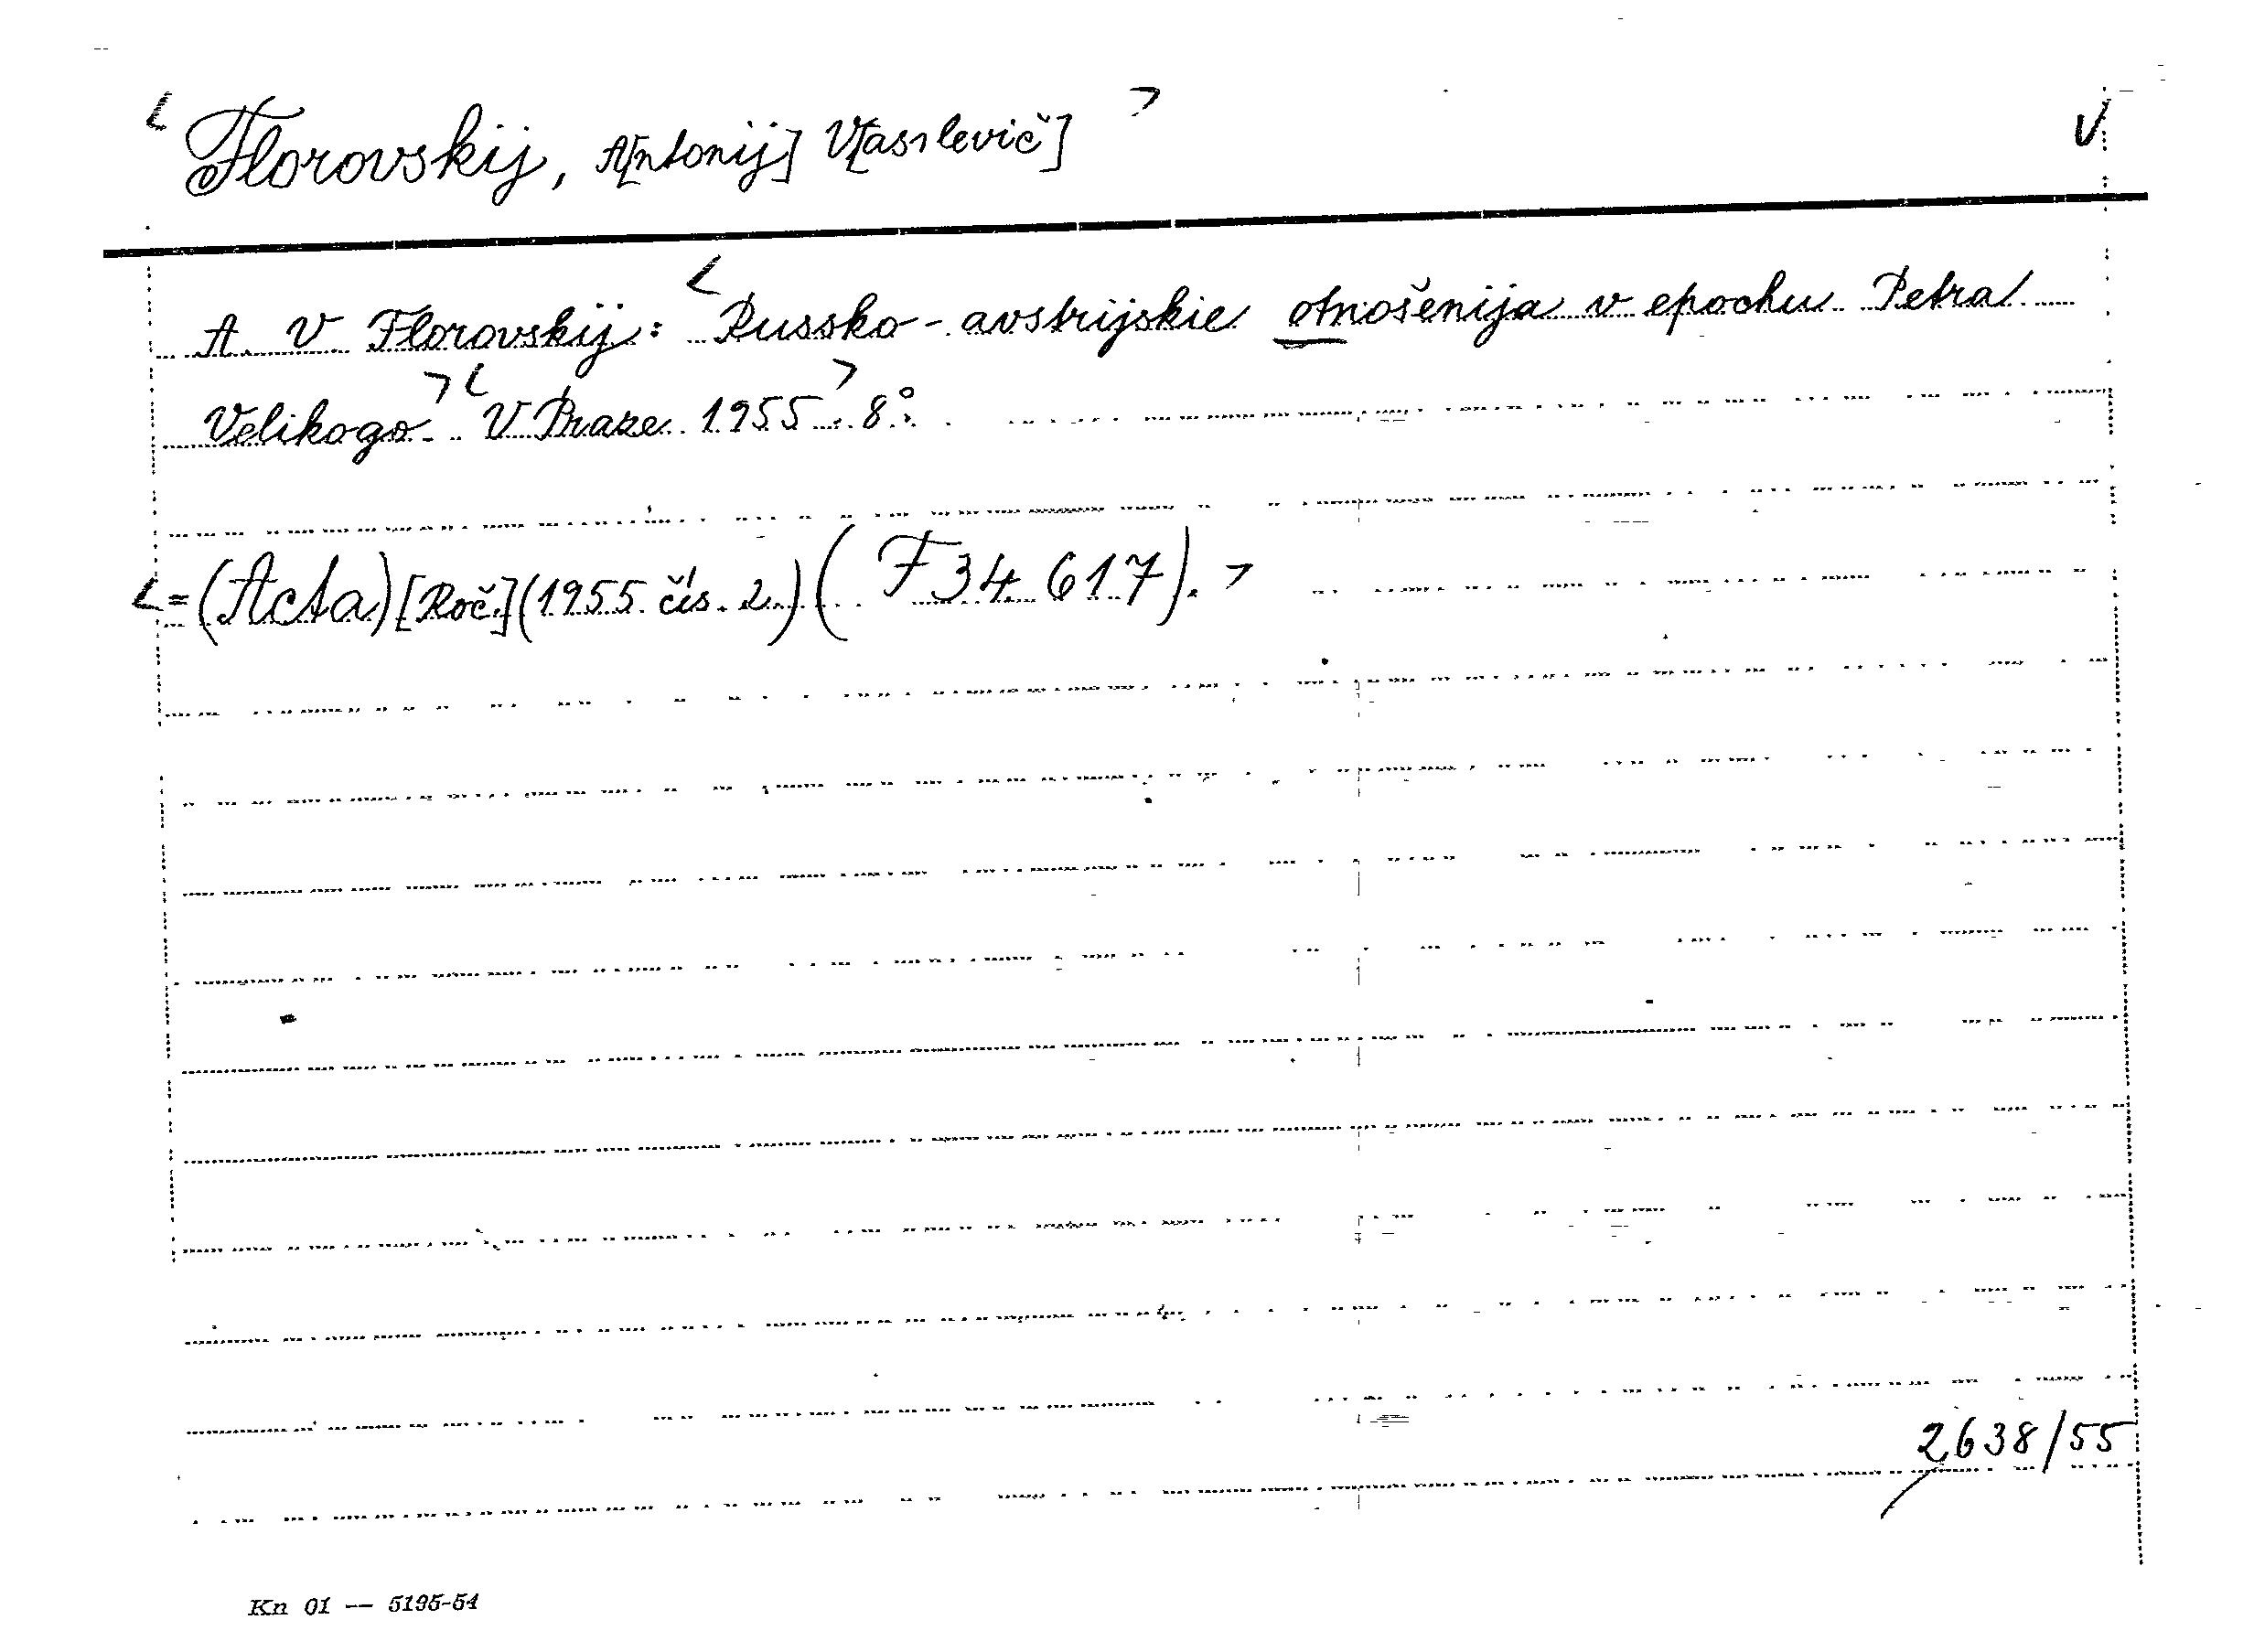 < Florovskij, A[ntonij] V[asilevič] > V
A. V Florovskij: < Russko-avstrijskie otnošenija v epochu Petra
Velikogo. > < V Praze 1955 >. 8°.
< = (Acta) [Roč.] (1955 čís. 2.) (F 34 617). >
2638/55
Kn 01 — 5195-54